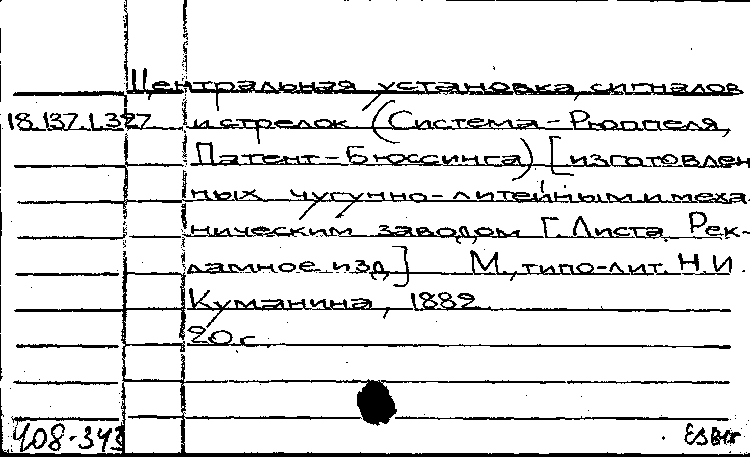 Центральная установка сигналов
18.137.1.327 и стрелок (Система-Рюппеля,
Патент-Бюссинга) [изготовлен
ных чугунно-литейным и меха-
ническим заводом Г. Листа. Рек-
ламное изд.] М., типо-лит. Н.И.
Куманина, 1882.
20 с.
408-343